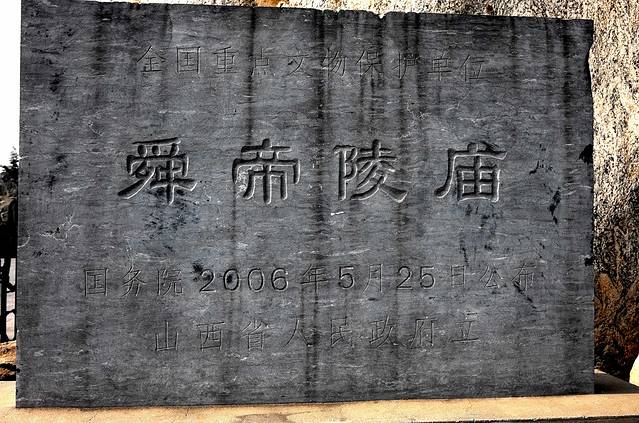 全国重点文物保护单位
舜帝陵庙
国务院2006年5月25日公布
山西省人民政府立